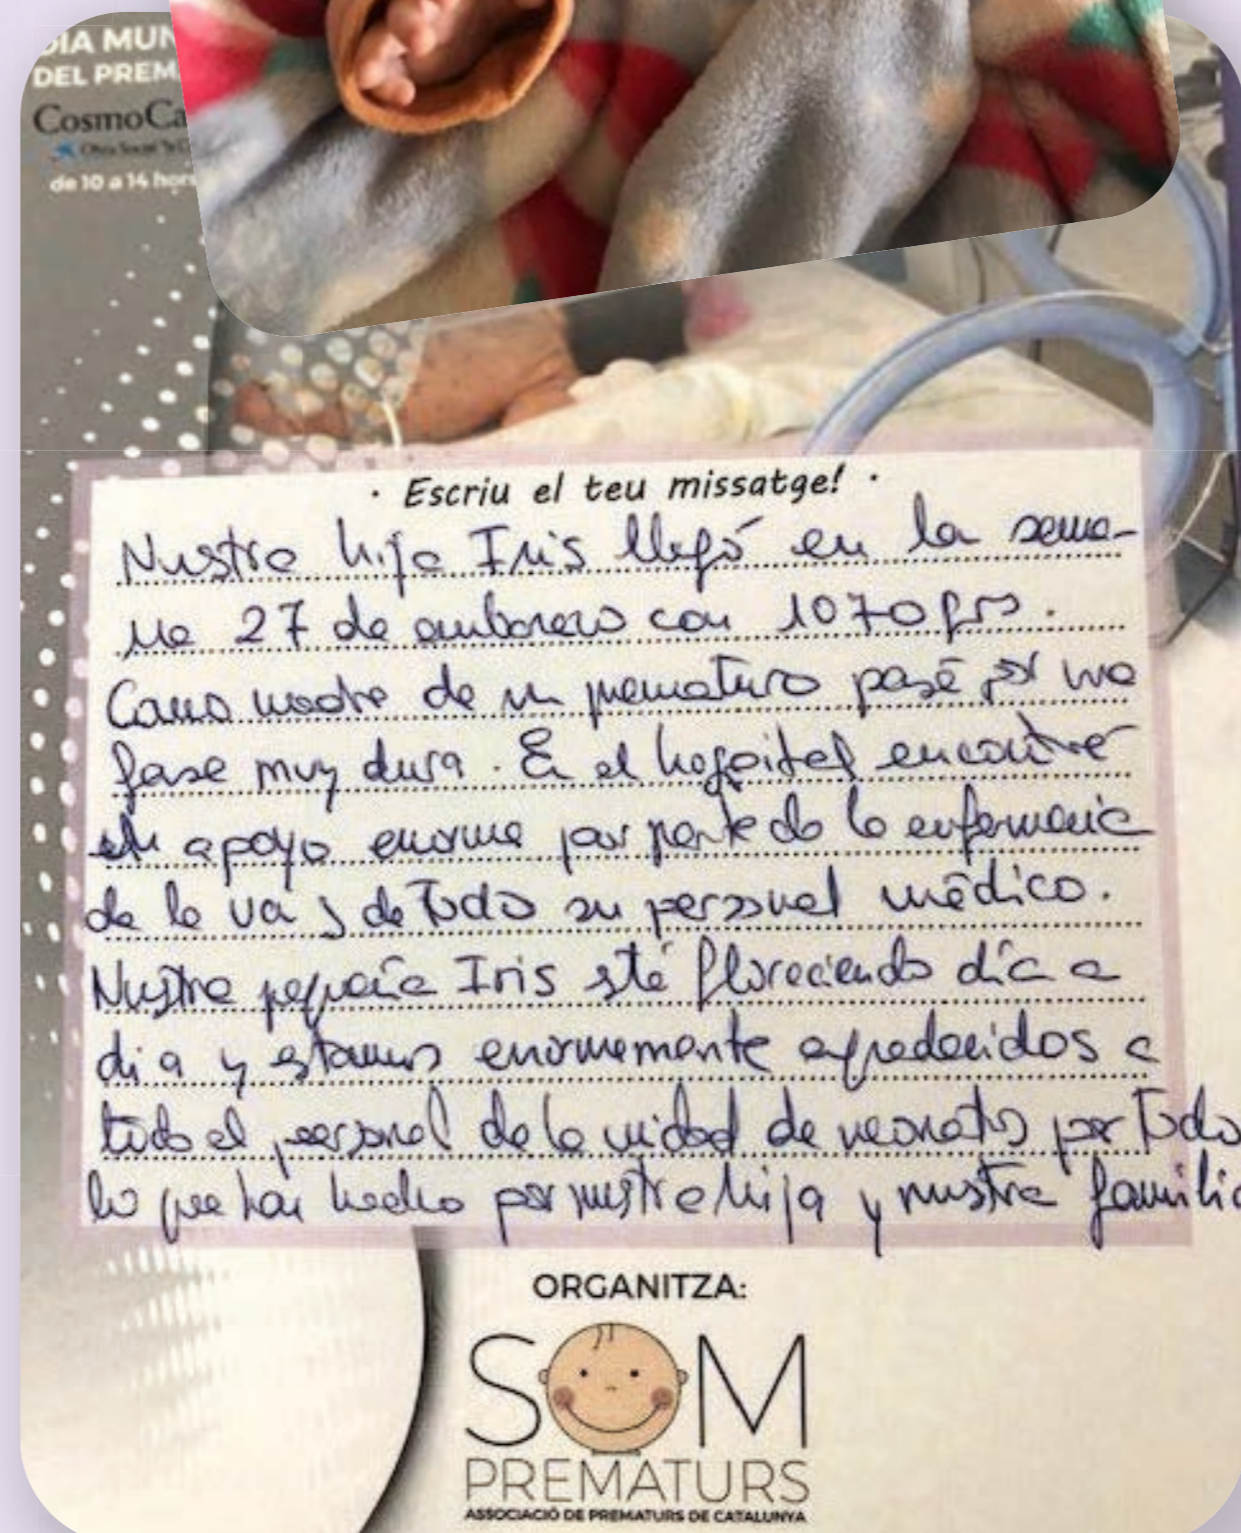 DIA MUN
DEL PREM
CosmoCa
de 10 a 14 hor
· Escriu el teu missatge! ·
Nuestra hija Iris llegó en la sema-
na 27 de embarazo con 1070 grs.
Como madre de un prematuro pasé por una
fase muy dura. En el hospital encontré
un apoyo enorme por parte de la enfermeria
de la va y de todo su personal médico.
Nuestra pequeña Iris está floreciendo día a
dia y estamos enormemente agradecidos a
todo el personal de la unidad de neonatos por todo
lo que han hecho por nuestra hija y nuestra familia
ORGANITZA:
SOM
PREMATURS
ASSOCIACIÓ DE PREMATURS DE CATALUNYA